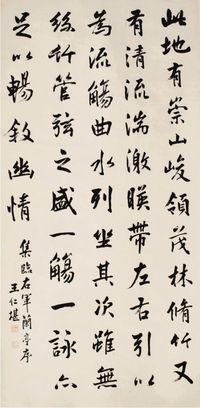 此地有崇山峻領茂林脩竹又
有清流湍激暎帶左右引以
為流觴曲水列坐其次雖無
絲竹管弦之盛一觴一詠亦
足以暢敘幽情
集臨右軍蘭亭序
王仁堪